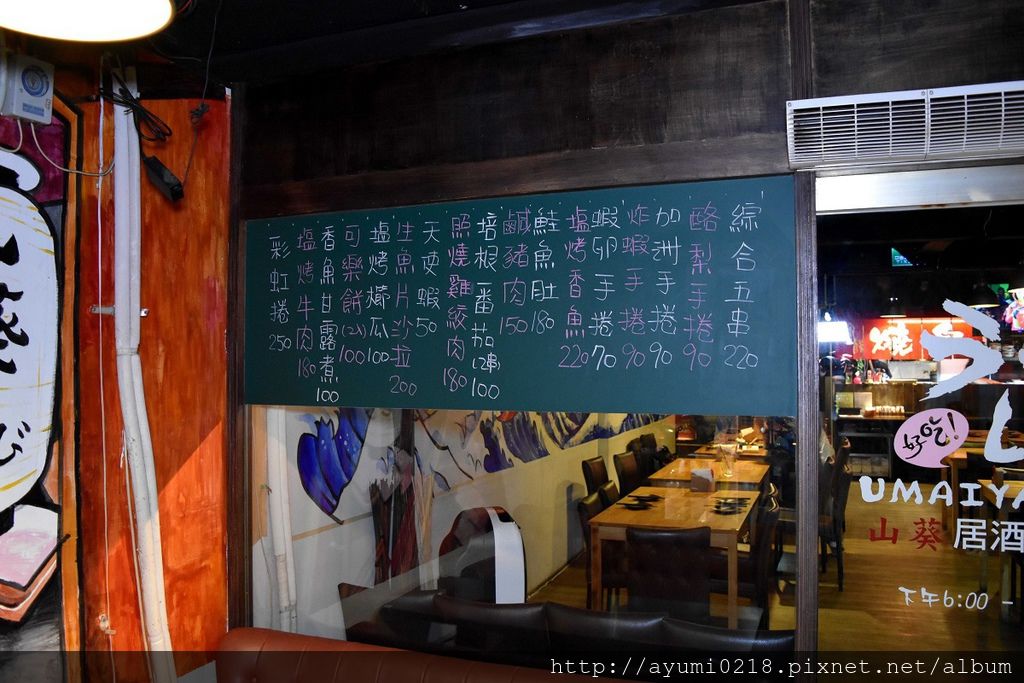 綜合五串220
酪梨手捲90
加洲手捲90
炸蝦手捲90
蝦卵手捲70
塩烤香魚220
鮭魚肚180
鹹豬肉150
培根番茄(2串)100
照燒雞絞肉180
天使蝦50
生魚片沙拉200
塩烤櫛瓜100
可樂餅(2入)100
香魚甘露煮100
塩烤牛肉180
彩虹捲250
好吃!
UMAIYA
山葵居酒
下午6:00 -
http://ayumi0218.pixnet.net/album